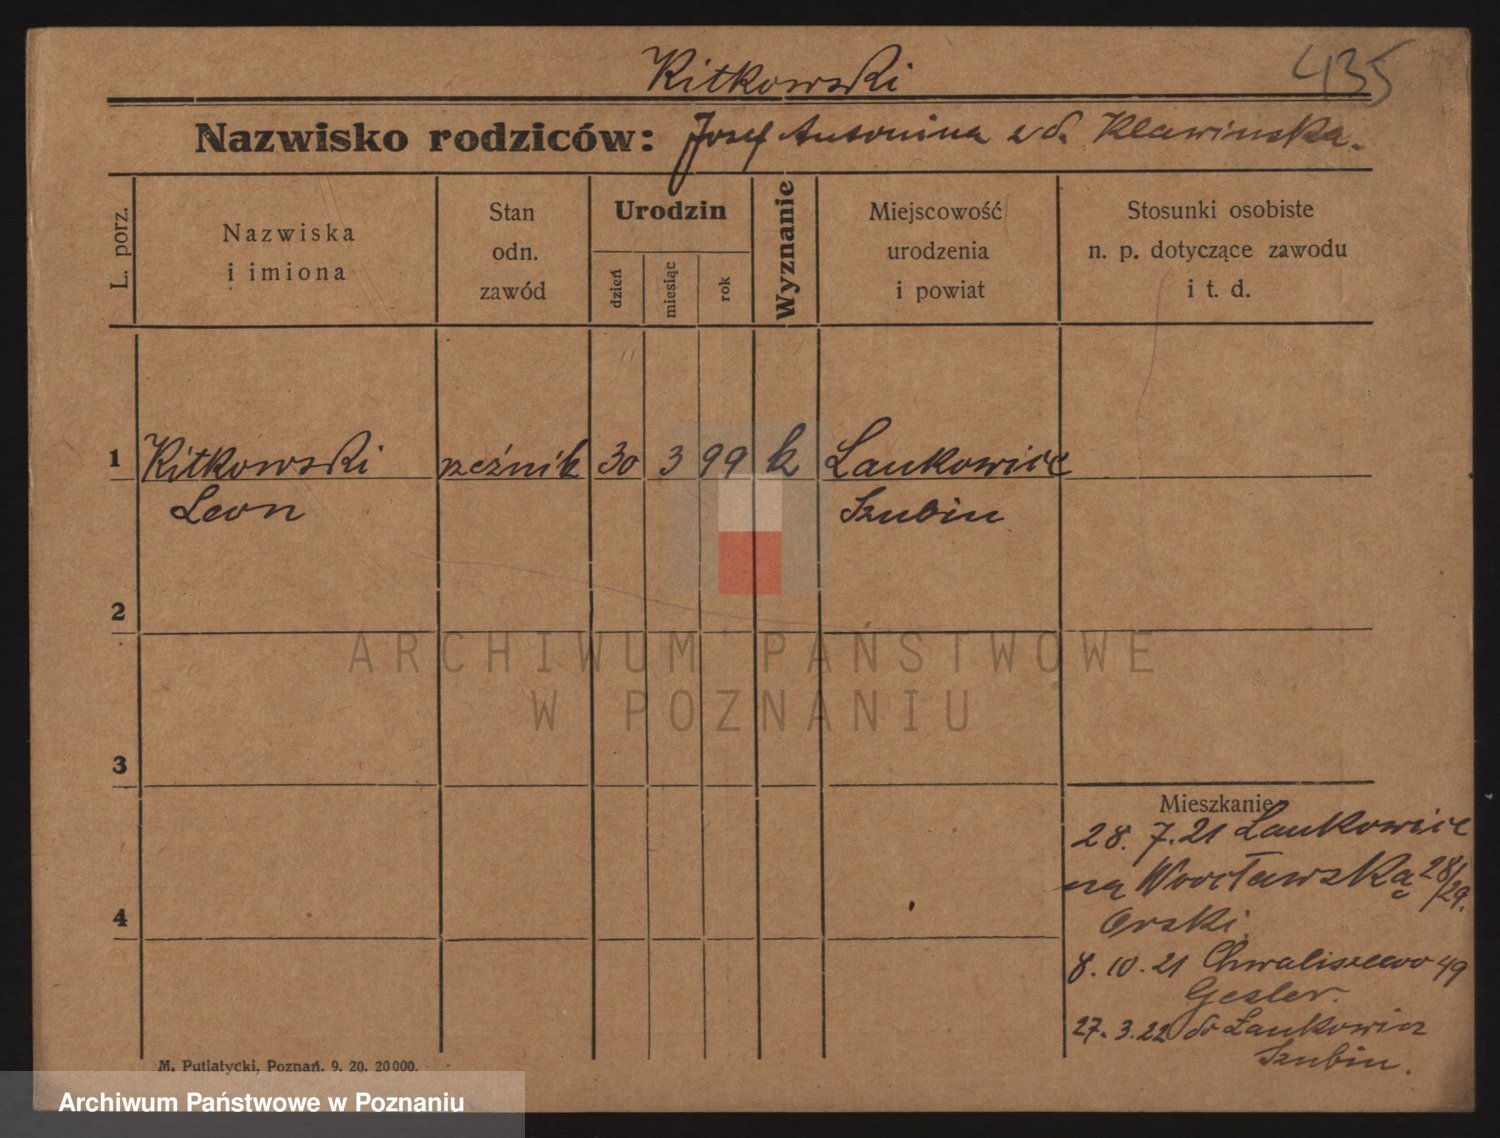 Kitkowski
435
Nazwisko rodziców: Josef Antonina z d. Klawinska.
L. porz.
Nazwiska
i imiona
Stan
odn.
zawód
Urodzin
dzień
miesiąc
rok
Wyznanie
Miejscowość
urodzenia
i powiat
Stosunki osobiste
n. p. dotyczące zawodu
i t. d.
1 Kitkowski rzeźnik 30 3 99 k Lankowice
Leon Szubin
2
ARCHIWUM PAŃSTWOWE
W POZNANIU
3
Mieszkanie
28. 7. 21 Lankowice
na Wrocławską 28/29.
Orski.
4
8. 10. 21 Chwaliszewo 49
Gesler.
27. 3. 22 do Lankowicz
Szubin.
M. Putiatycki, Poznań. 9. 20. 20000.
Archiwum Państwowe w Poznaniu